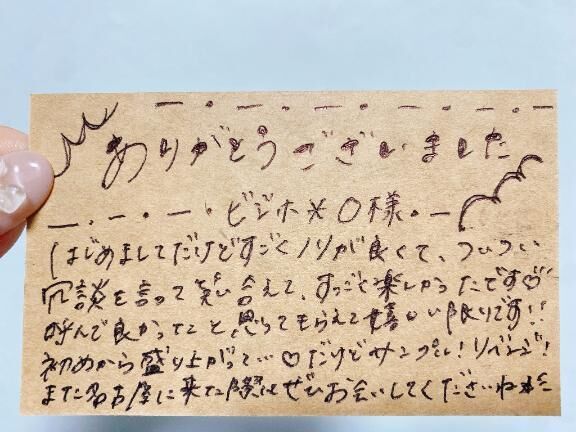 ありがとうございました
ビジホ※〇様
はじめましてだけどすごくノリが良くて、ついつい
冗談を言って笑い合えて、すっごく楽しかったです♡
呼んで良かったこと思ってもらえて嬉しい限りです!!
初めから盛り上がって…♡だけどサンプル!リベンジ!
また名古屋に来た際はぜひお会いしてくださいね